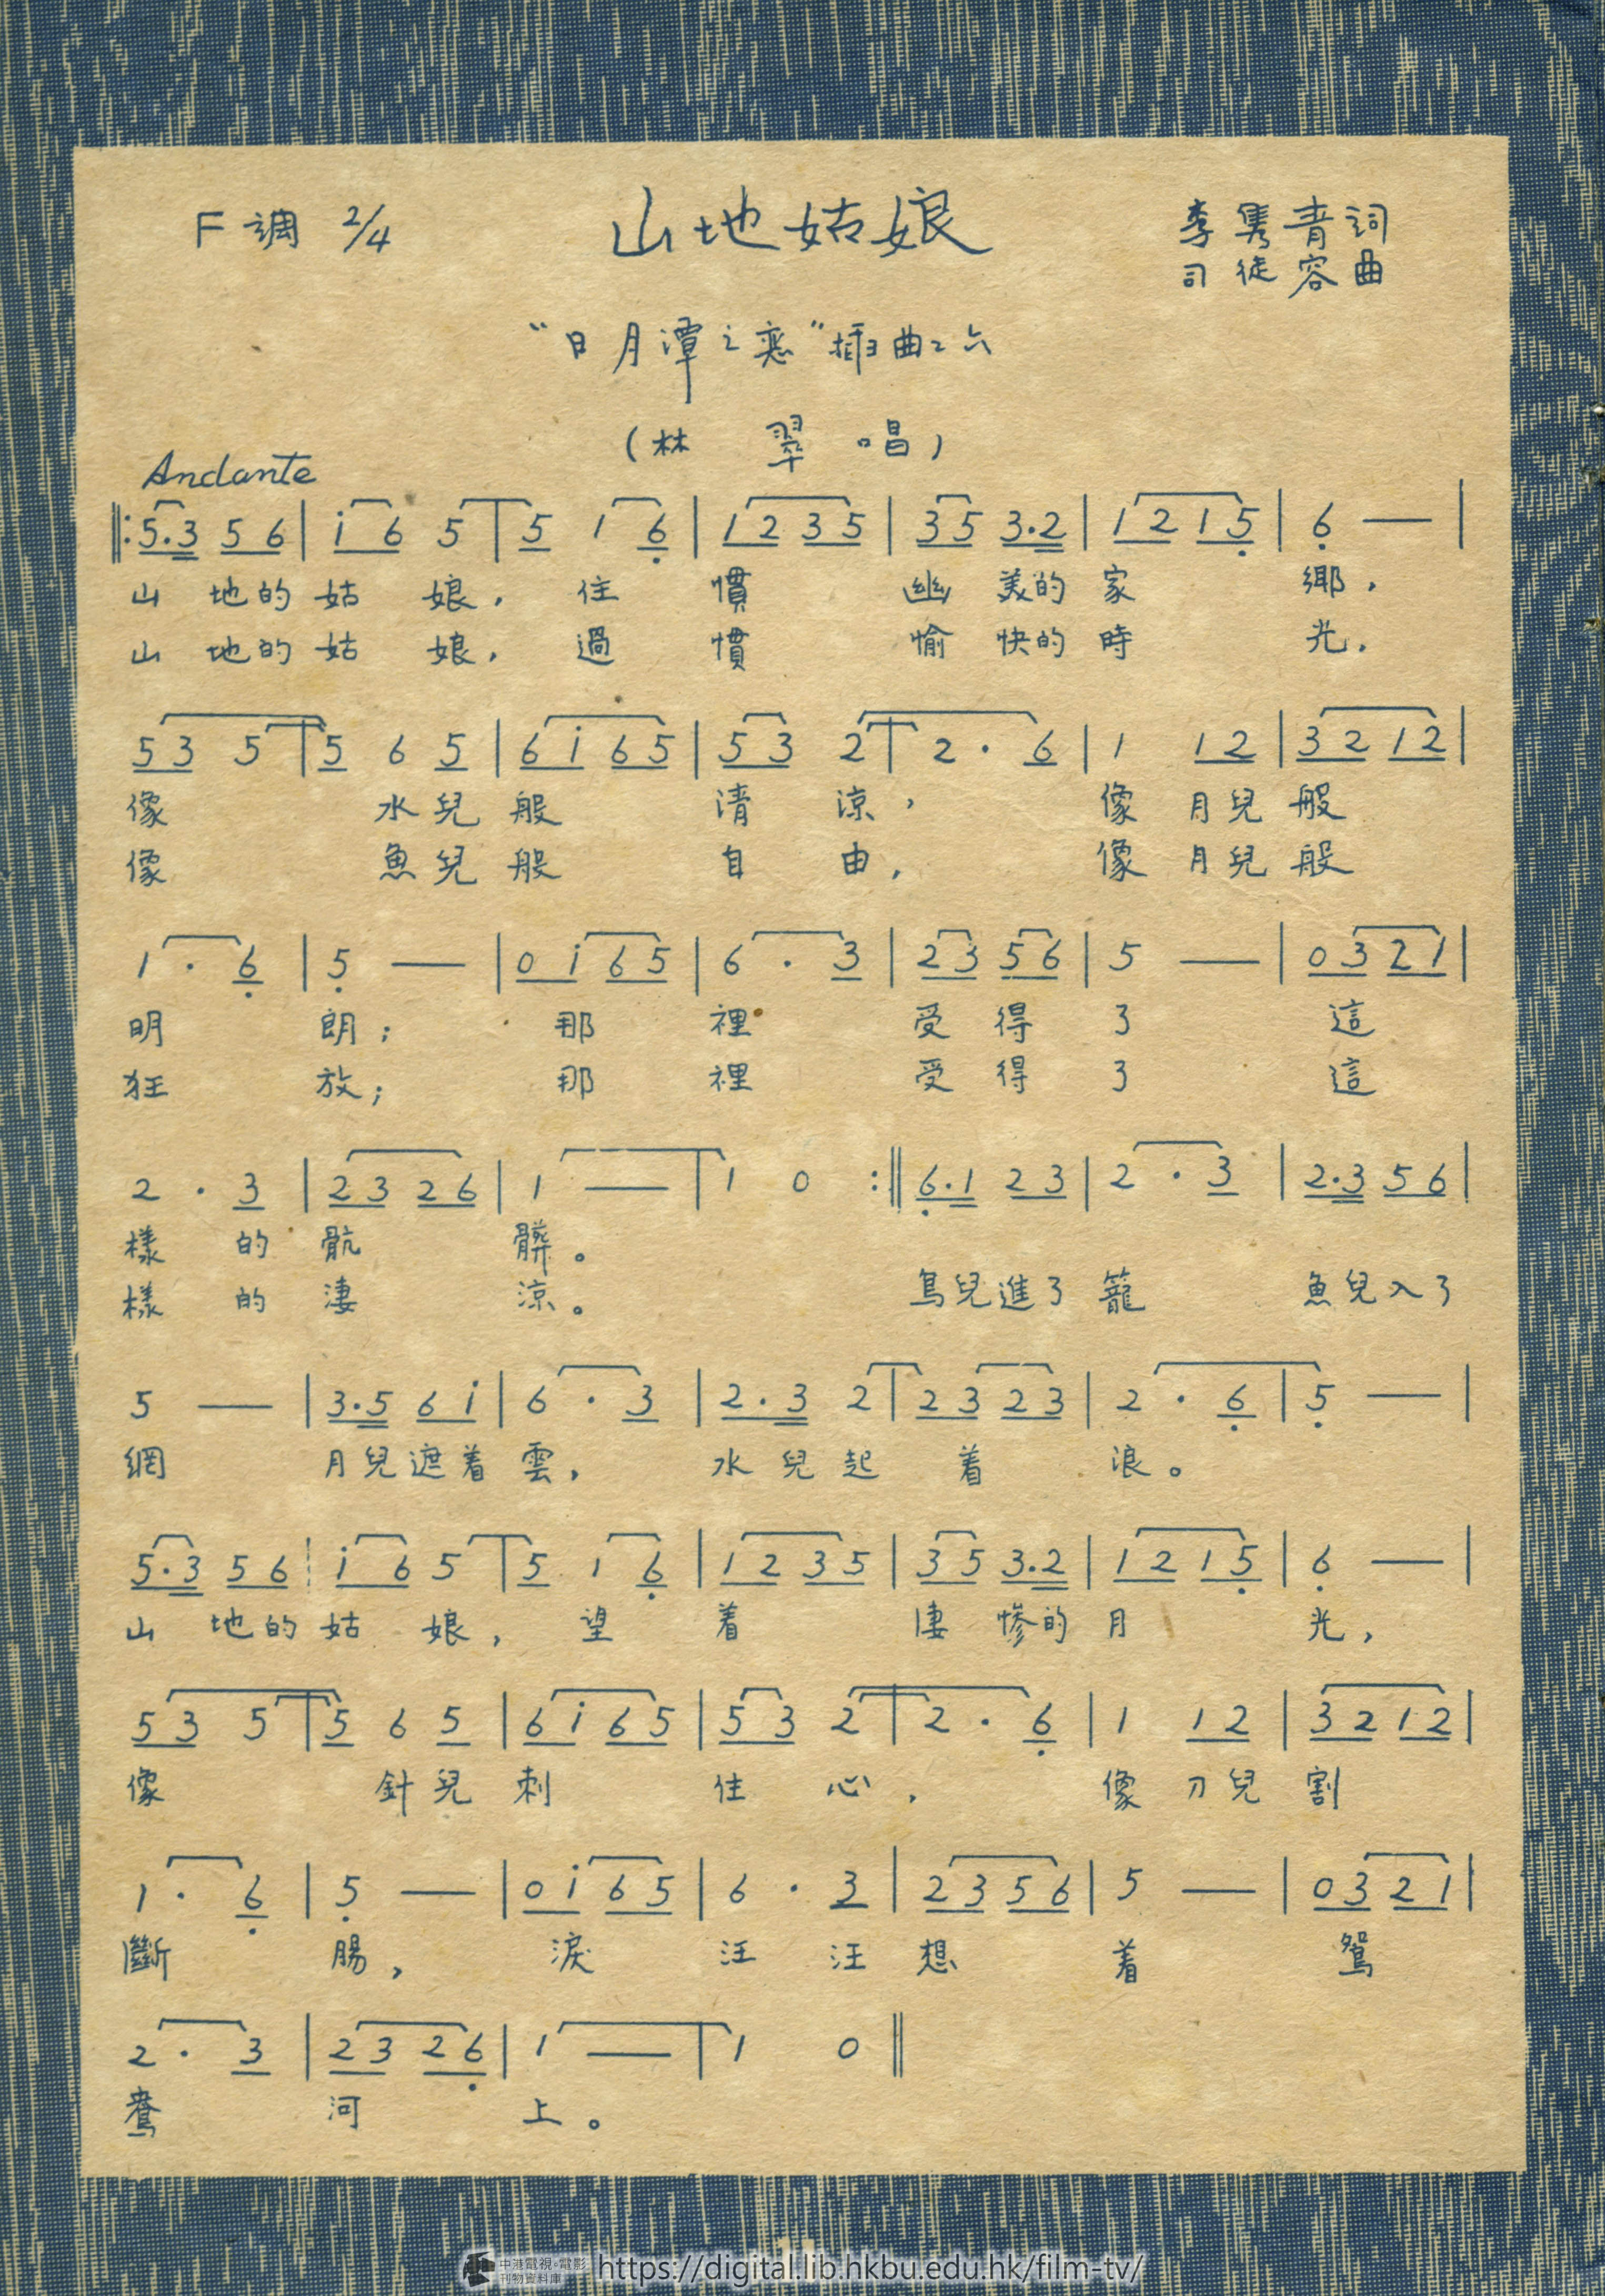 F調 2/4
山地姑娘
李雋青詞
司徒容曲
“日月潭之恋”插曲之六
(林翠唱)
Andante
‖:5.3 56|i6 5|5 1 6|12 35|35 3.2|12 15|6 —|
山地的姑娘,住慣幽美的家鄉,
山地的姑娘,過慣愉快的時光,
53 5|5 6 5|6i 65|53 2|2 . 6|1 12|32 12|
像水兒般清涼,像月兒般
像魚兒般自由,像月兒般
1 . 6|5 —|0i 65|6 . 3|23 56|5 —|03 21|
明朗;那裡受得了這
狂放;那裡受得了這
2 . 3|23 26|1 —|1 0 :‖6.1 23|2 . 3|2.3 56|
樣的骯髒。
樣的淒涼。鳥兒進了籠魚兒入了
5 —|3.5 6i|6 . 3|2.3 2|23 23|2 . 6|5 —|
網月兒遮着雲,水兒起着浪。
5.3 56|i6 5|5 1 6|12 35|35 3.2|12 15|6 —|
山地的姑娘,望着淒慘的月光,
53 5|5 6 5|6i 65|53 2|2 . 6|1 12|32 12|
像針兒刺住心,像刀兒割
1 . 6|5 —|0i 65|6 . 3|23 56|5 —|03 21|
斷腸,淚汪汪想着鴛
2 . 3|23 26|1 —|1 0‖
鴦河上。
中港電視·電影
刊物資料庫
https://digital.lib.hkbu.edu.hk/film-tv/